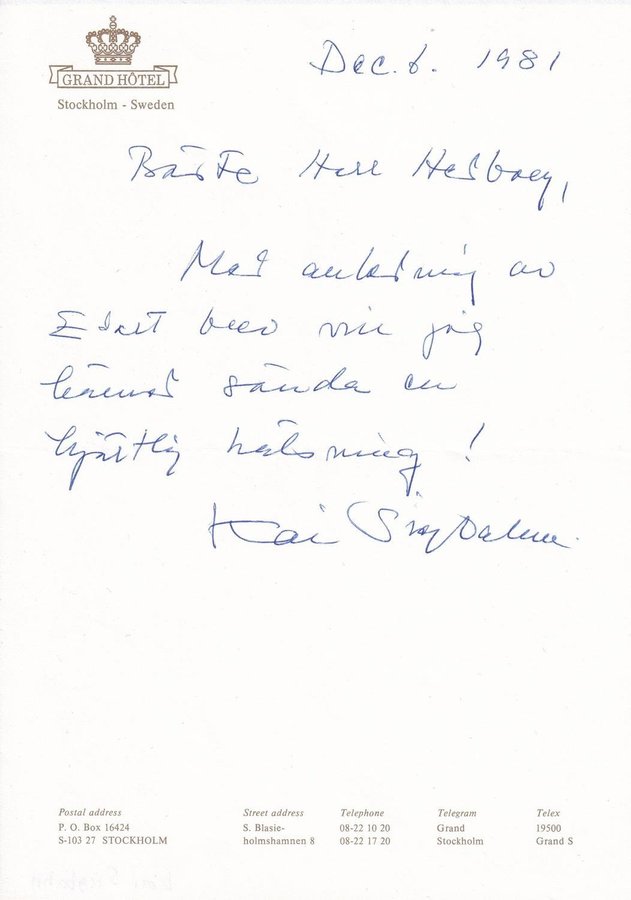 GRAND HÔTEL
Stockholm - Sweden
Dec. 6. 1981
Bäste Herr
Med anledning av
Edert brev vill jag
härmed sända en
hjärtlig hälsning!
Kai Siegbahn
Postal address
P. O. Box 16424
S-103 27 STOCKHOLM
Street address
S. Blasie-
holmshamnen 8
Telephone
08-22 10 20
08-22 17 20
Telegram
Grand
Stockholm
Telex
19500
Grand S